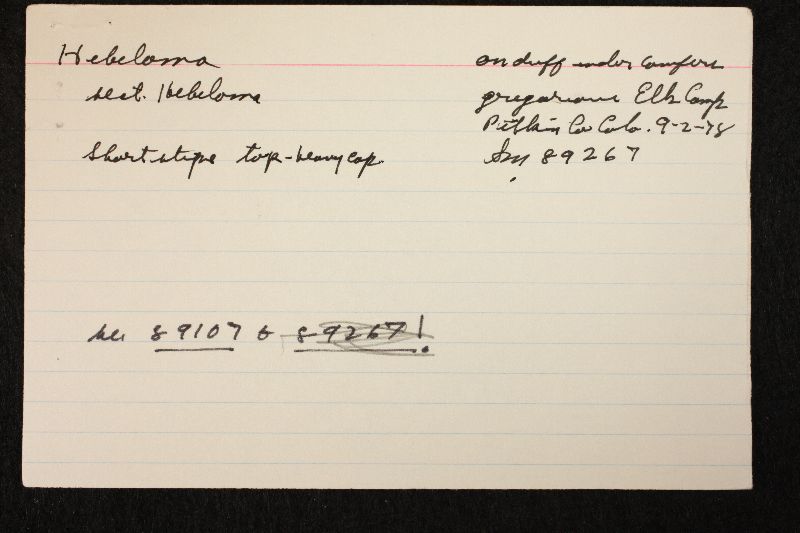 Hebeloma
sect. Hebeloma
Short stipe top-heavy cap.
on duff under conifers
gregarious Elk Camp
Pitkin Co Colo. 9-2-78
Sm 89267
see 89107 & 89267!